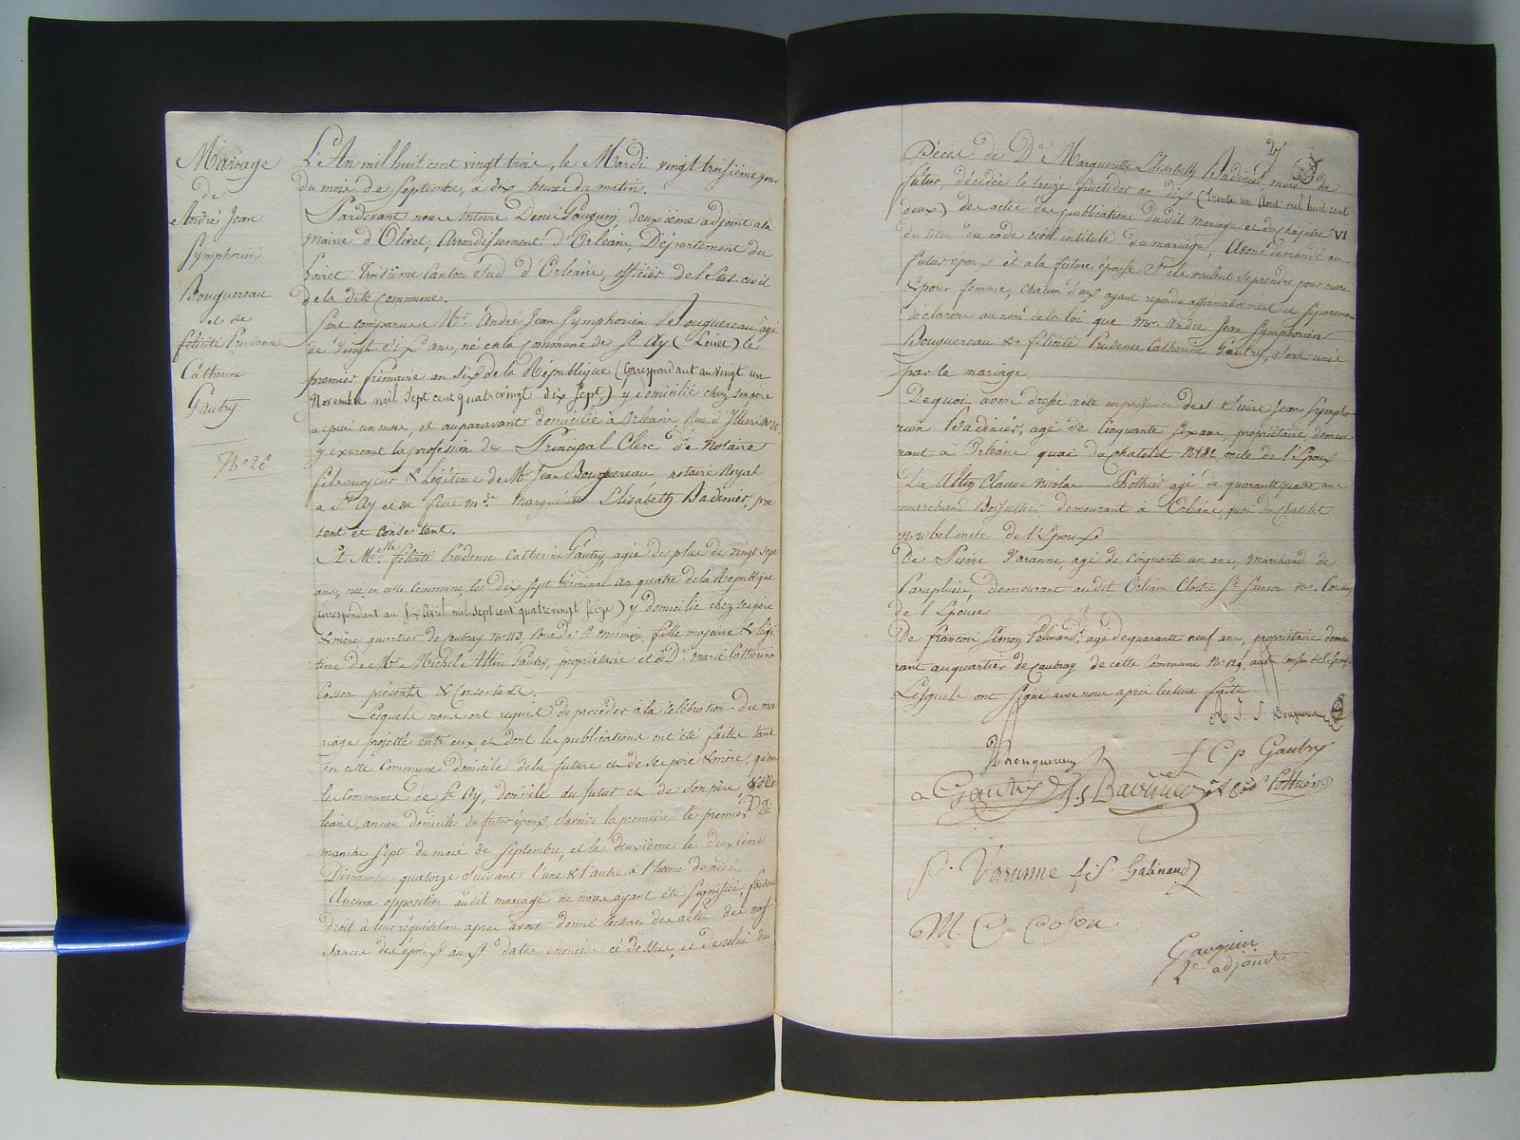 Mariage
de
André Jean
Symphorien
Bouguereau
et de
félicité Prudence
Catherine
Gautry
L'An mil huit cent vingt trois, le Mardi vingt troisieme jour
du mois de Septembre, à dix heures du matin.
Pardevant nous Antoine Denis Gauguin deuxième adjoint a la
Mairie d'Olivet, Arrondissement d'Orléans, Département du
Loiret Troisième Canton Sud d'Orléans, officier de l'état civil
de la dite Commune.
Sont comparus Mr. André Jean Symphorien Bouguereau agé
de vingt six ans, né en la Commune de St Ay (Loiret) le
premier frimaire an six de la République (Correspondant au vingt un
Novembre mil sept cent quatrevingt dix sept) y domicilié chez son pere
et auparavant domicilié à Orléans,
y exercant la profession de Principal Clerc de Notaire
fils majeur & légitime de Mr. Jean Bouguereau notaire Royal
a St Ay et de feue Marguerite Elisabeth Badinier, pré
sent et consentant.
Et Melle félicité Prudence Catherine Gautry, agée de plus de vingt sept
ans, née en cette Commune, le dix sept Germinal an quatre de la République
(correspondant au six avril mil sept cent quatrevingt seize) y domiciliée chez ses père
& mère quartier de Caubray No 113, fille majeure & légi
time de Mr. Michel Gautry, propriétaire et de De Marie Catherine
Cosson présents & Consentants.
Lesquels nous ont requis de procéder à la célébration du ma
riage projetté entre eux et dont les publications ont été faites tant
en cette Commune domicile de la future et de ses père & mère, qu'en
la Commune de St Ay, domicile du futur et de son père, & d'Or
léans, ancien domicile du futur époux, la première le premier
manche sept du mois de Septembre, et la deuxième le deuxième
Dimanche quatorze suivant l'une & l'autre à l'heure de midi
Aucune opposition audit mariage ne nous ayant été signifiée, faisant
droit à leur réquisition après avoir donné lecture des actes de nais
sance des époux aux dates énoncées ci dessus, et de celui de
Décès de De Marguerite Elisabeth Badinier mère du
futur, décédée le treize fructidor an dix (trente un Aout mil huit cent
deux) des actes de publications dudit mariage et du chapitre VI
du titre du code civil intitulé du mariage, Avons demandé au
futur époux et a la future épouse s'ils veulent se prendre pour mari
& pour femme, chacun d'eux ayant répondu affirmativement et séparément
déclarons au nom de la loi que Mr André Jean Symphorien
Bouguereau & félicité Prudence Catherine Gautry, sont unis
par le mariage
De quoi avons dressé acte en présence des Sieurs Jean Sympho
rien Badinier, agé de Cinquante six ans, propriétaire, demeu
rant a Orléans quai du Chatelet oncle de l'Epoux
De Claude Nicolas Pothier agé de quarante quatre ans
marchand demeurant a Orléans, quai du Chatelet
de l'Epoux
De Pierre Varanne, agé de Cinquante un ans, marchand de
Parapluies, demeurant audit Orléans Cloitre St
de l'Epouse
De francois Simon agé de quarante neuf ans, propriétaire demeu
rant au quartier de Caubray de cette Commune
Lesquels ont signé avec nous après lecture faite
A J S Bouguereau
Bouguereau
f C p Gautry
Gautry
J. S Badinier
Pothier
P. Varanne
M. C. Cosson
Gauguin
2e adjoint